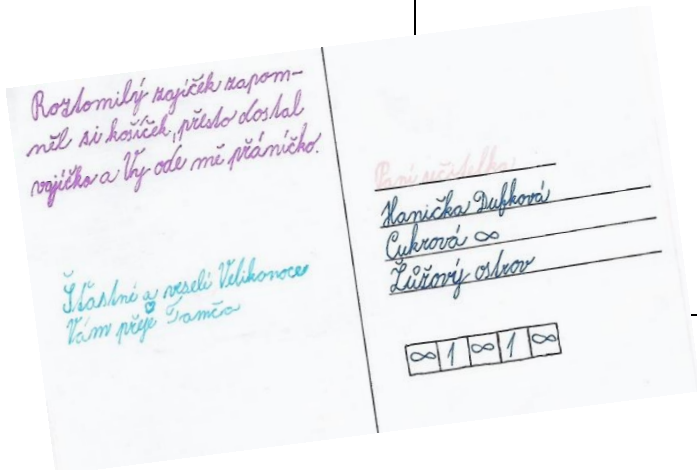 Roztomilý zajíček zapom-
něl si košíček, přesto dostal
vajíčko a Vy ode mě přáníčko.
Šťastné a veselé Velikonoce
Vám přeje Tamča
Paní učitelka
Hanička Dufková
Cukrová ∞
Žůžový ostrov
∞ 1 ∞ 1 ∞